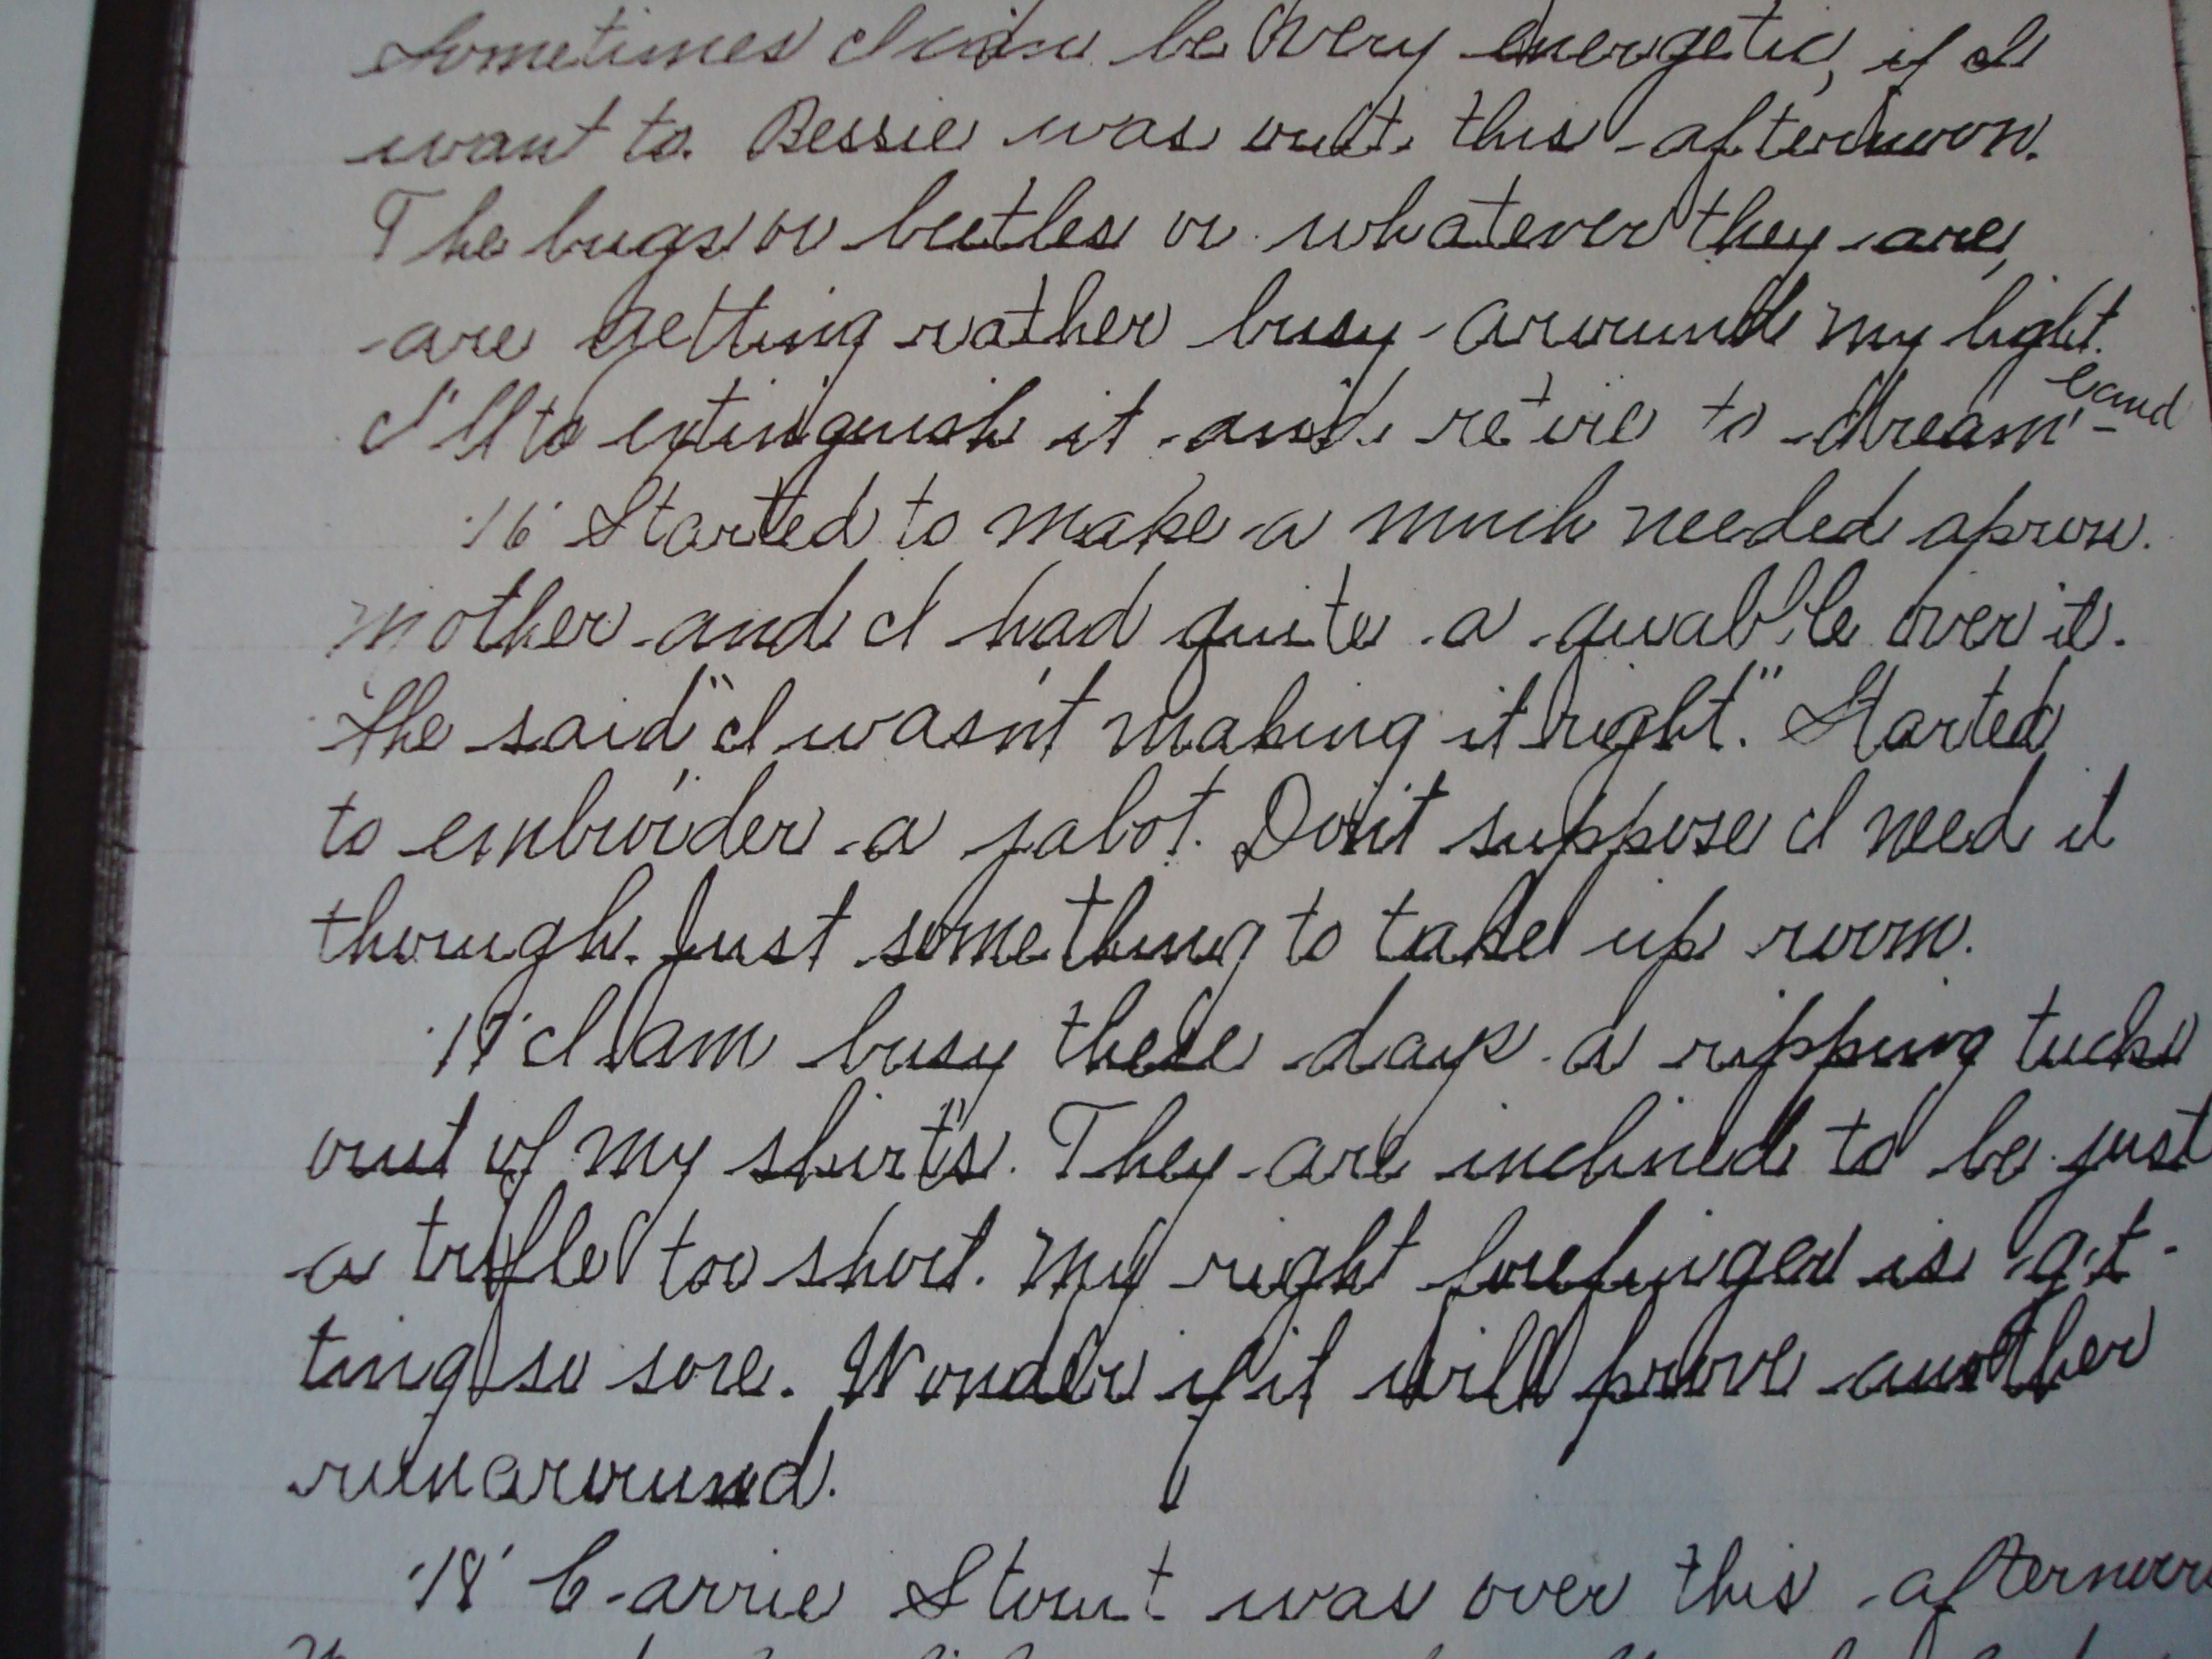 Sometimes I can be very energetic, if I
want to. Bessie was out this afternoon.
The bugs or beetles or whatever they are,
are getting rather busy around my light.
I'll to extinguish it and retire to dream-land
'16' Started to make a much needed apron.
Mother and I had quite a quabble over it.
She said "I wasn't making it right." Started
to embroider a jabot. Don't suppose I need it
though. Just something to take up room.
'17' I am busy these days a ripping tucks
out of my skirts. They are inclined to be just
a trifle too short. My right forefinger is get-
ting so sore. Wonder if it will prove another
runaround.
'18' Carrie Stout was over this afternoon